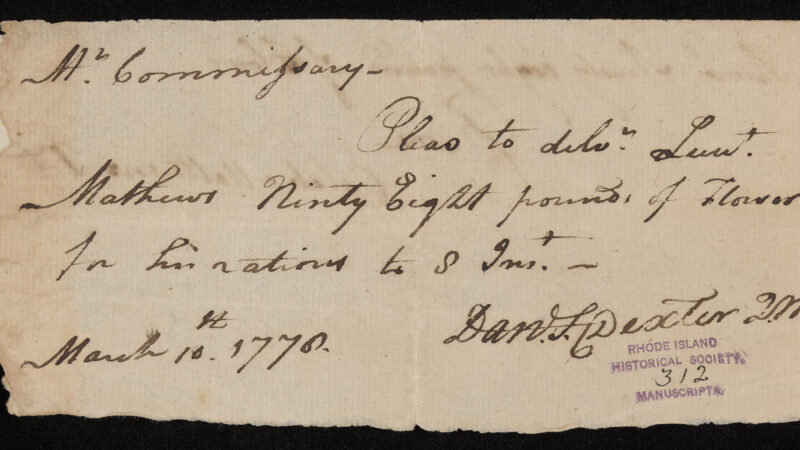 Mr. Commissary —
Pleas to delvr. Lieut.
Mathews Ninty Eight pounds of Flower
for his rations to 8 Inst. —
Danl. S. Dexter Q M
March 10th. 1778.
RHODE ISLAND
HISTORICAL SOCIETY.
312
MANUSCRIPTS.